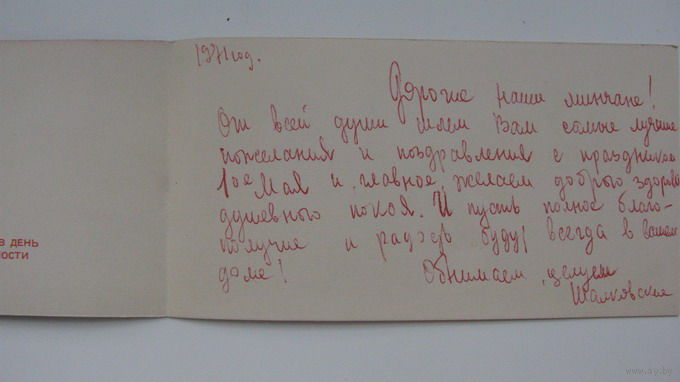 1971 год.
Дорогие наши минчане!
От всей души шлем Вам самые лучшие
пожелания и поздравления с праздником
1ое Мая и, главное, желаем доброго здоровь
душевного покоя. И пусть полное благо-
получие и радость будут всегда в вашем
доме!
Обнимаем, целуем
В ДЕНЬ
ОСТИ
www.ay.by